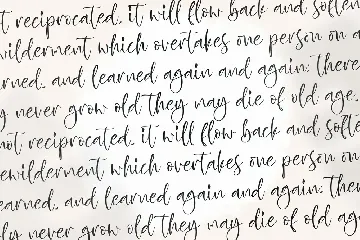 t reciprocated, it will flow back and soften
wilderment which overtakes one person on a
rned, and learned again and again: there
y never grow old They may die of old age.
not reciprocated, it will flow back and softe
ewilderment which overtakes one person on
earned, and learned again and again: ther
ly never grow old They may die of old ag